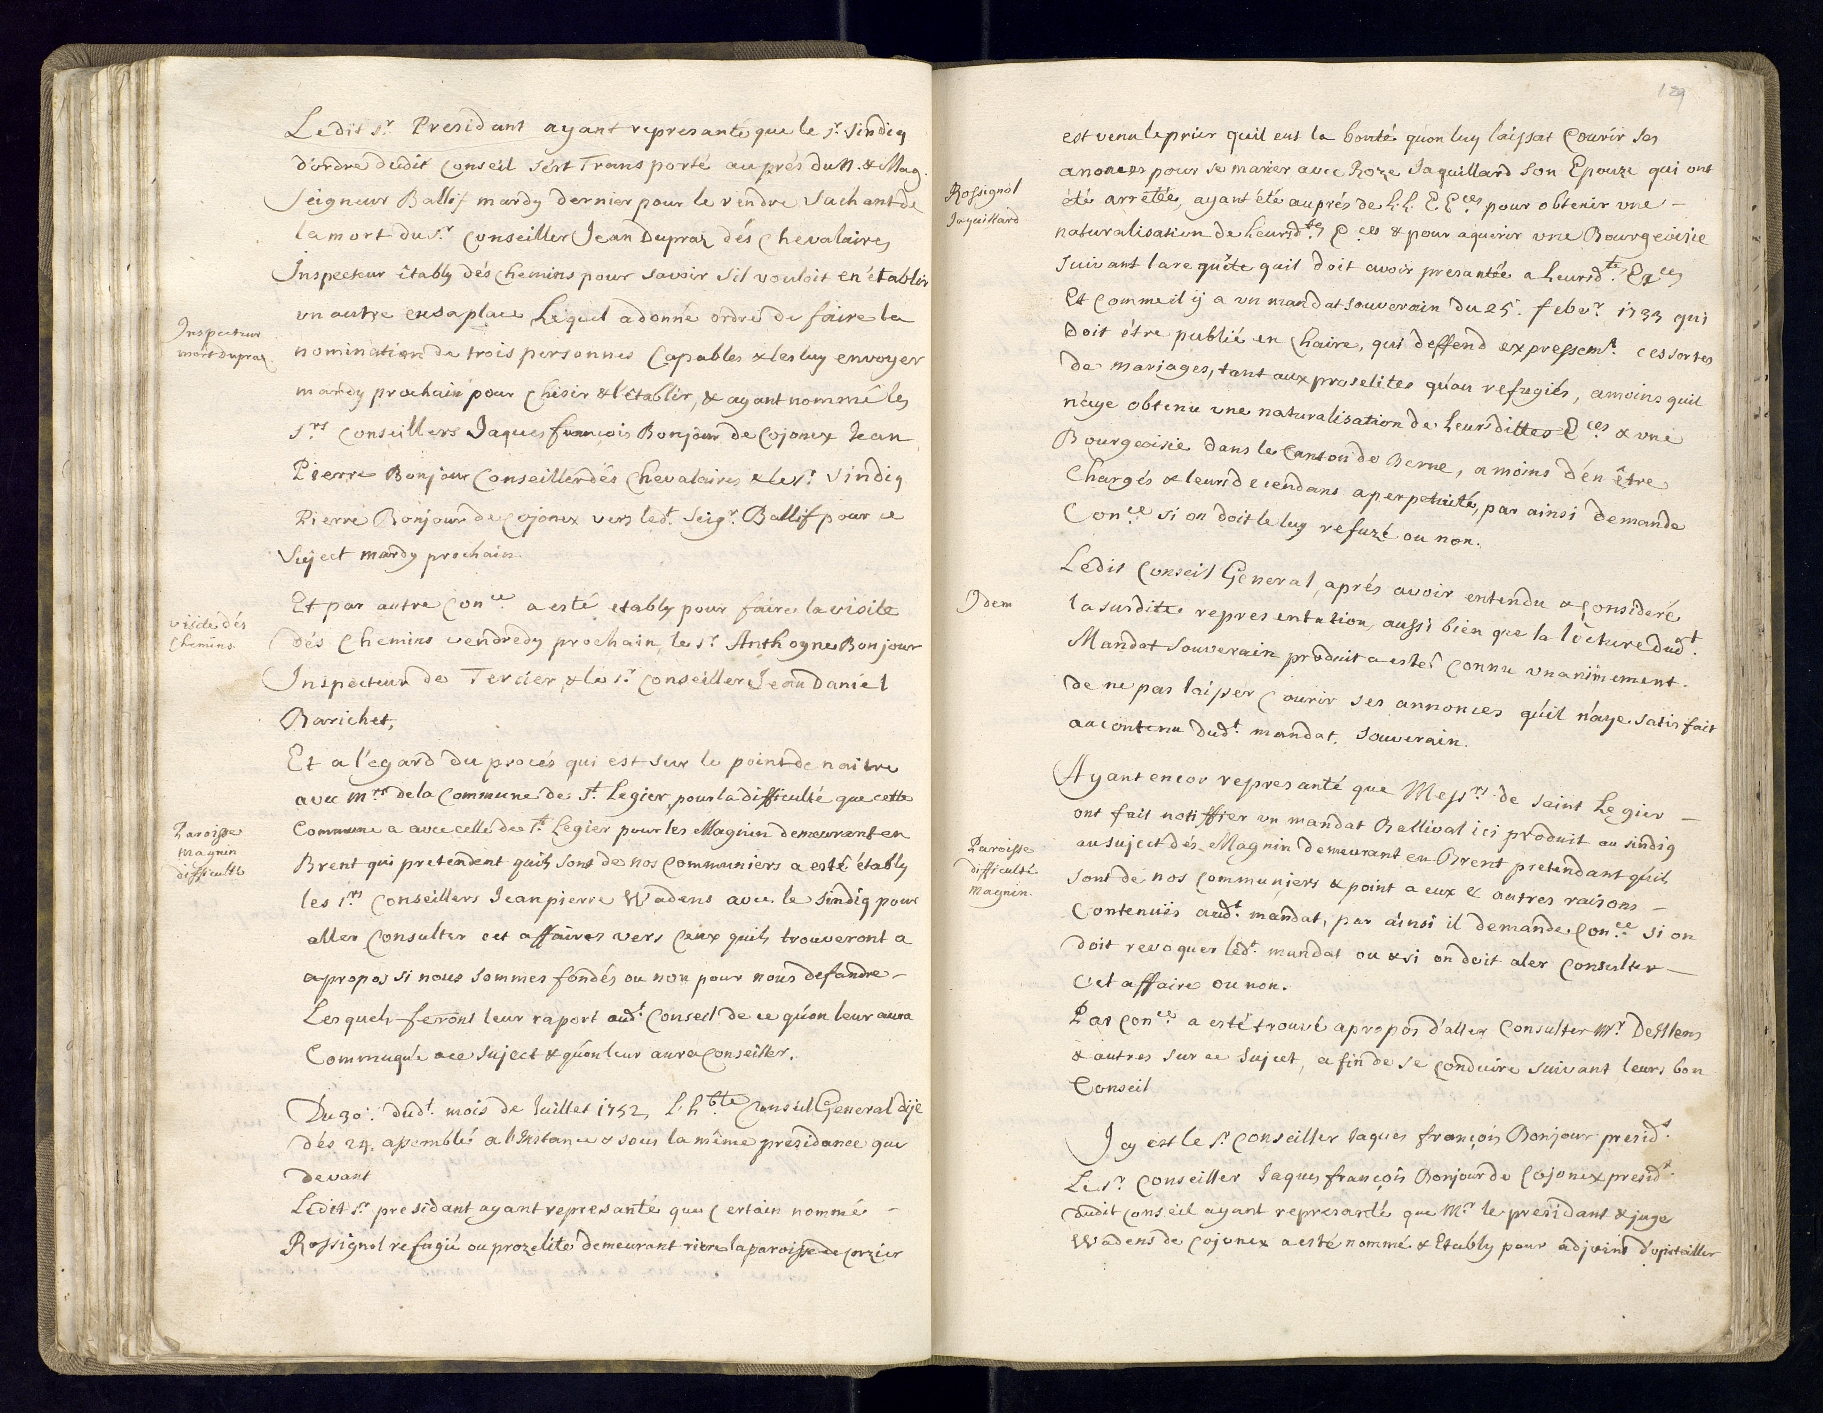 Ledit Sr. Presidant ayant representé que le Sr. Sindiq
d'ordre dudit Conseil s'est Transporté auprés du N. & Mag.
Seigneur Ballif mardy dernier pour le rendre Sachant de
la mort du Sr. Conseiller Jean Dupraz dés Chevalaires
Inspecteur ètably dés Chemins pour savoir sil vouloit en établir
un autre en sa place, Lequel a donné ordre de faire la
Inspecteur
mort dupraz
nomination de trois personnes Capables & les luy envoyer
mardy prochain pour Chisir & l'ètablir, & ayant nommé les
Srs. Conseillers Jaques françois Bonjour de Cojonex Jean
Pierre Bonjour Conseiller dés Chevalaires & le Sr. Sindiq
Pierre Bonjour de Cojonex vers led.t Seigr. Ballif pour ce
Suject mardy prochain.
Et par autre Con.ce a esté etably pour faire la visite
visite dés
Chemins
dés Chemins vendredy prochain, le Sr. Anthoyne Bonjour
Inspecteur de Tercier, & le Sr. Conseiller Jean Daniel
Barichet,
Et a l'egard du procés qui est sur le point de naitre
avec Mrs. de la Commune de St. Legier, pour la difficulté que cette
Paroisse
Magnin
difficulté
Commune a avec celle de St. Legier pour les Magnin demeurant en
Brent qui pretendent quils sont de nos Communiers a esté étably
les Srs. Conseillers Jean pierre Wadens avec le Sindiq pour
aller Consulter cet affaires vers Ceux quils trouveront a
apropos si nous sommes fondés ou non pour nous defandre –
Lesquels feront leur raport aud.t Conseil de ce qu'on leur aura
Commuqué a ce Suject & qu'on leur aura Conseiller.
Du 30e. dud.t mois de Juillet 1752, L'h.ble Conseil General dije
dés 24. assemblé a l'Instance & sous la même presidance que
devant
Ledit Sr. presidant ayant representé que Certain nommé –
Rossignol refugié ou prozelite demeurant riere la paroisse de Corzier
129
est venu le prier quil eut la bonté quon luy laissat Courir ses
anonces pour se marier avec Roze Jaquillard son Epouze qui ont
Rossignol
Jaquillard
été arretée, ayant été auprés de L.L. E.Ec.es pour obtenir une –
naturalisation de Leursd.tes E.ces & pour aquerir une Bourgeoisie
Suivant la requête quil doit avoir presantée a Leursd.tes Ex.ces
Et Comme il ÿ a un mandat souverain du 25. febvr. 1733 qui
doit être publié en Chaire, qui deffend expressem.t ces sortes
de mariages, tant aux proselites qu'au refugiés, amoins quil
n'aye obtenu une naturalisation de Leursdittes E.ces & une
Bourgeoisie dans le Canton de Berne, a moins d'en être
Chargés & leurs decendans a perpetuité, par ainsi demande
Con.ce si on doit le luy refuzé ou non.
Ledit Conseil General, aprés avoir entendu & Consideré
Idem
la susdite representation, aussi bien que la lecture dud.t
Mandat Souverain produit a esté Connu unanimement
de ne pas laisser Courir ses annonces qu'il n'aye satisfait
au contenu dud.t mandat Souverain.
Ayant encor representé que Messrs. de Saint Legier –
ont fait notiffier un mandat Ballival ici produit au sindiq
Paroisse
difficulté
Magnin.
au suject dés Magnin demeurant en Brent pretendant quils
sont de nos Communiers & point a eux & autres raisons –
Contenuës aud.t mandat, par ainsi il demande Con.ce si on
doit revoquer led.t mandat ou & si on doit aler Consulter –
Cet affaire ou non.
Par Con.ce a esté trouvé apropos d'aller Consulter Mr. DeIllens
& autres sur ce Sujet, a fin de se Conduire suivant leurs bon
Conseil
Icy est le Sr. Conseiller Jaques françois Bonjour presid.t
Le Sr. Conseiller Jaques françois Bonjour de Cojonex presid.t
dudit Conseil ayant representé que Mr. le presidant & juge
Wadens de Cojonex a esté nommé & Etably pour adjoint